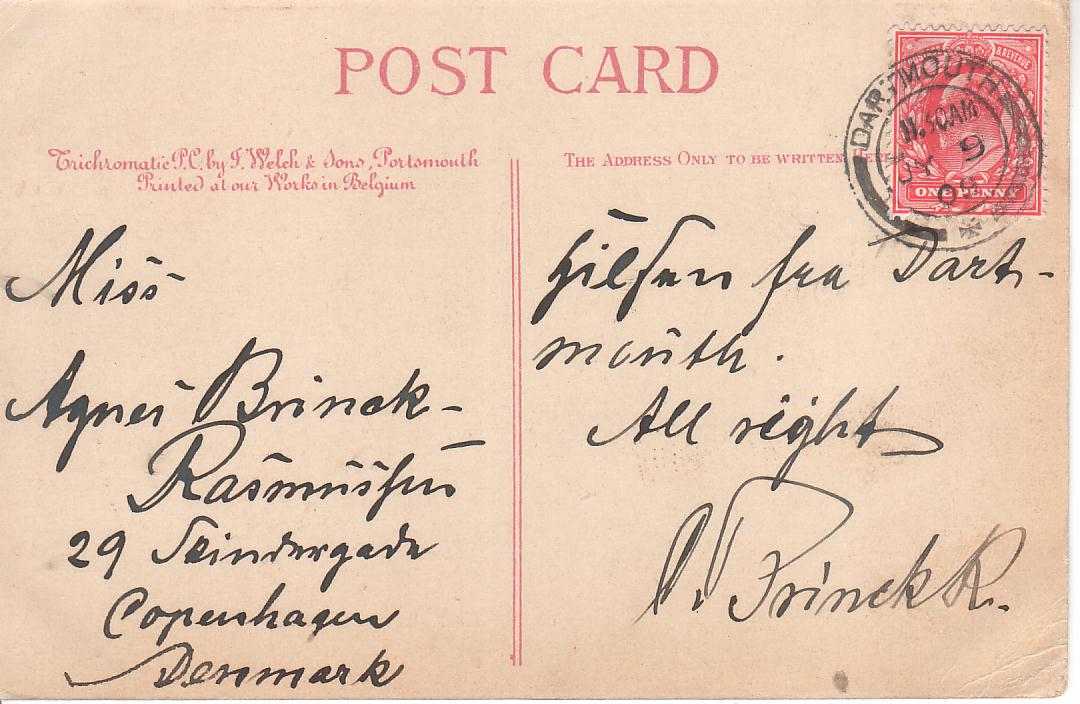 POST CARD
Trichromatic P.C. by J. Welch & Sons, Portsmouth
Printed at our Works in Belgium
THE ADDRESS ONLY TO BE WRITTEN HERE
& REVENUE
ONE PENNY
DARTMOUTH
11.30AM
JY 9
09
Miss
Agnes Brinck-
Rasmussen
29 Skindergade
Copenhagen
Denmark
Hilsen fra Dart-
mouth.
All right
Brinck R.